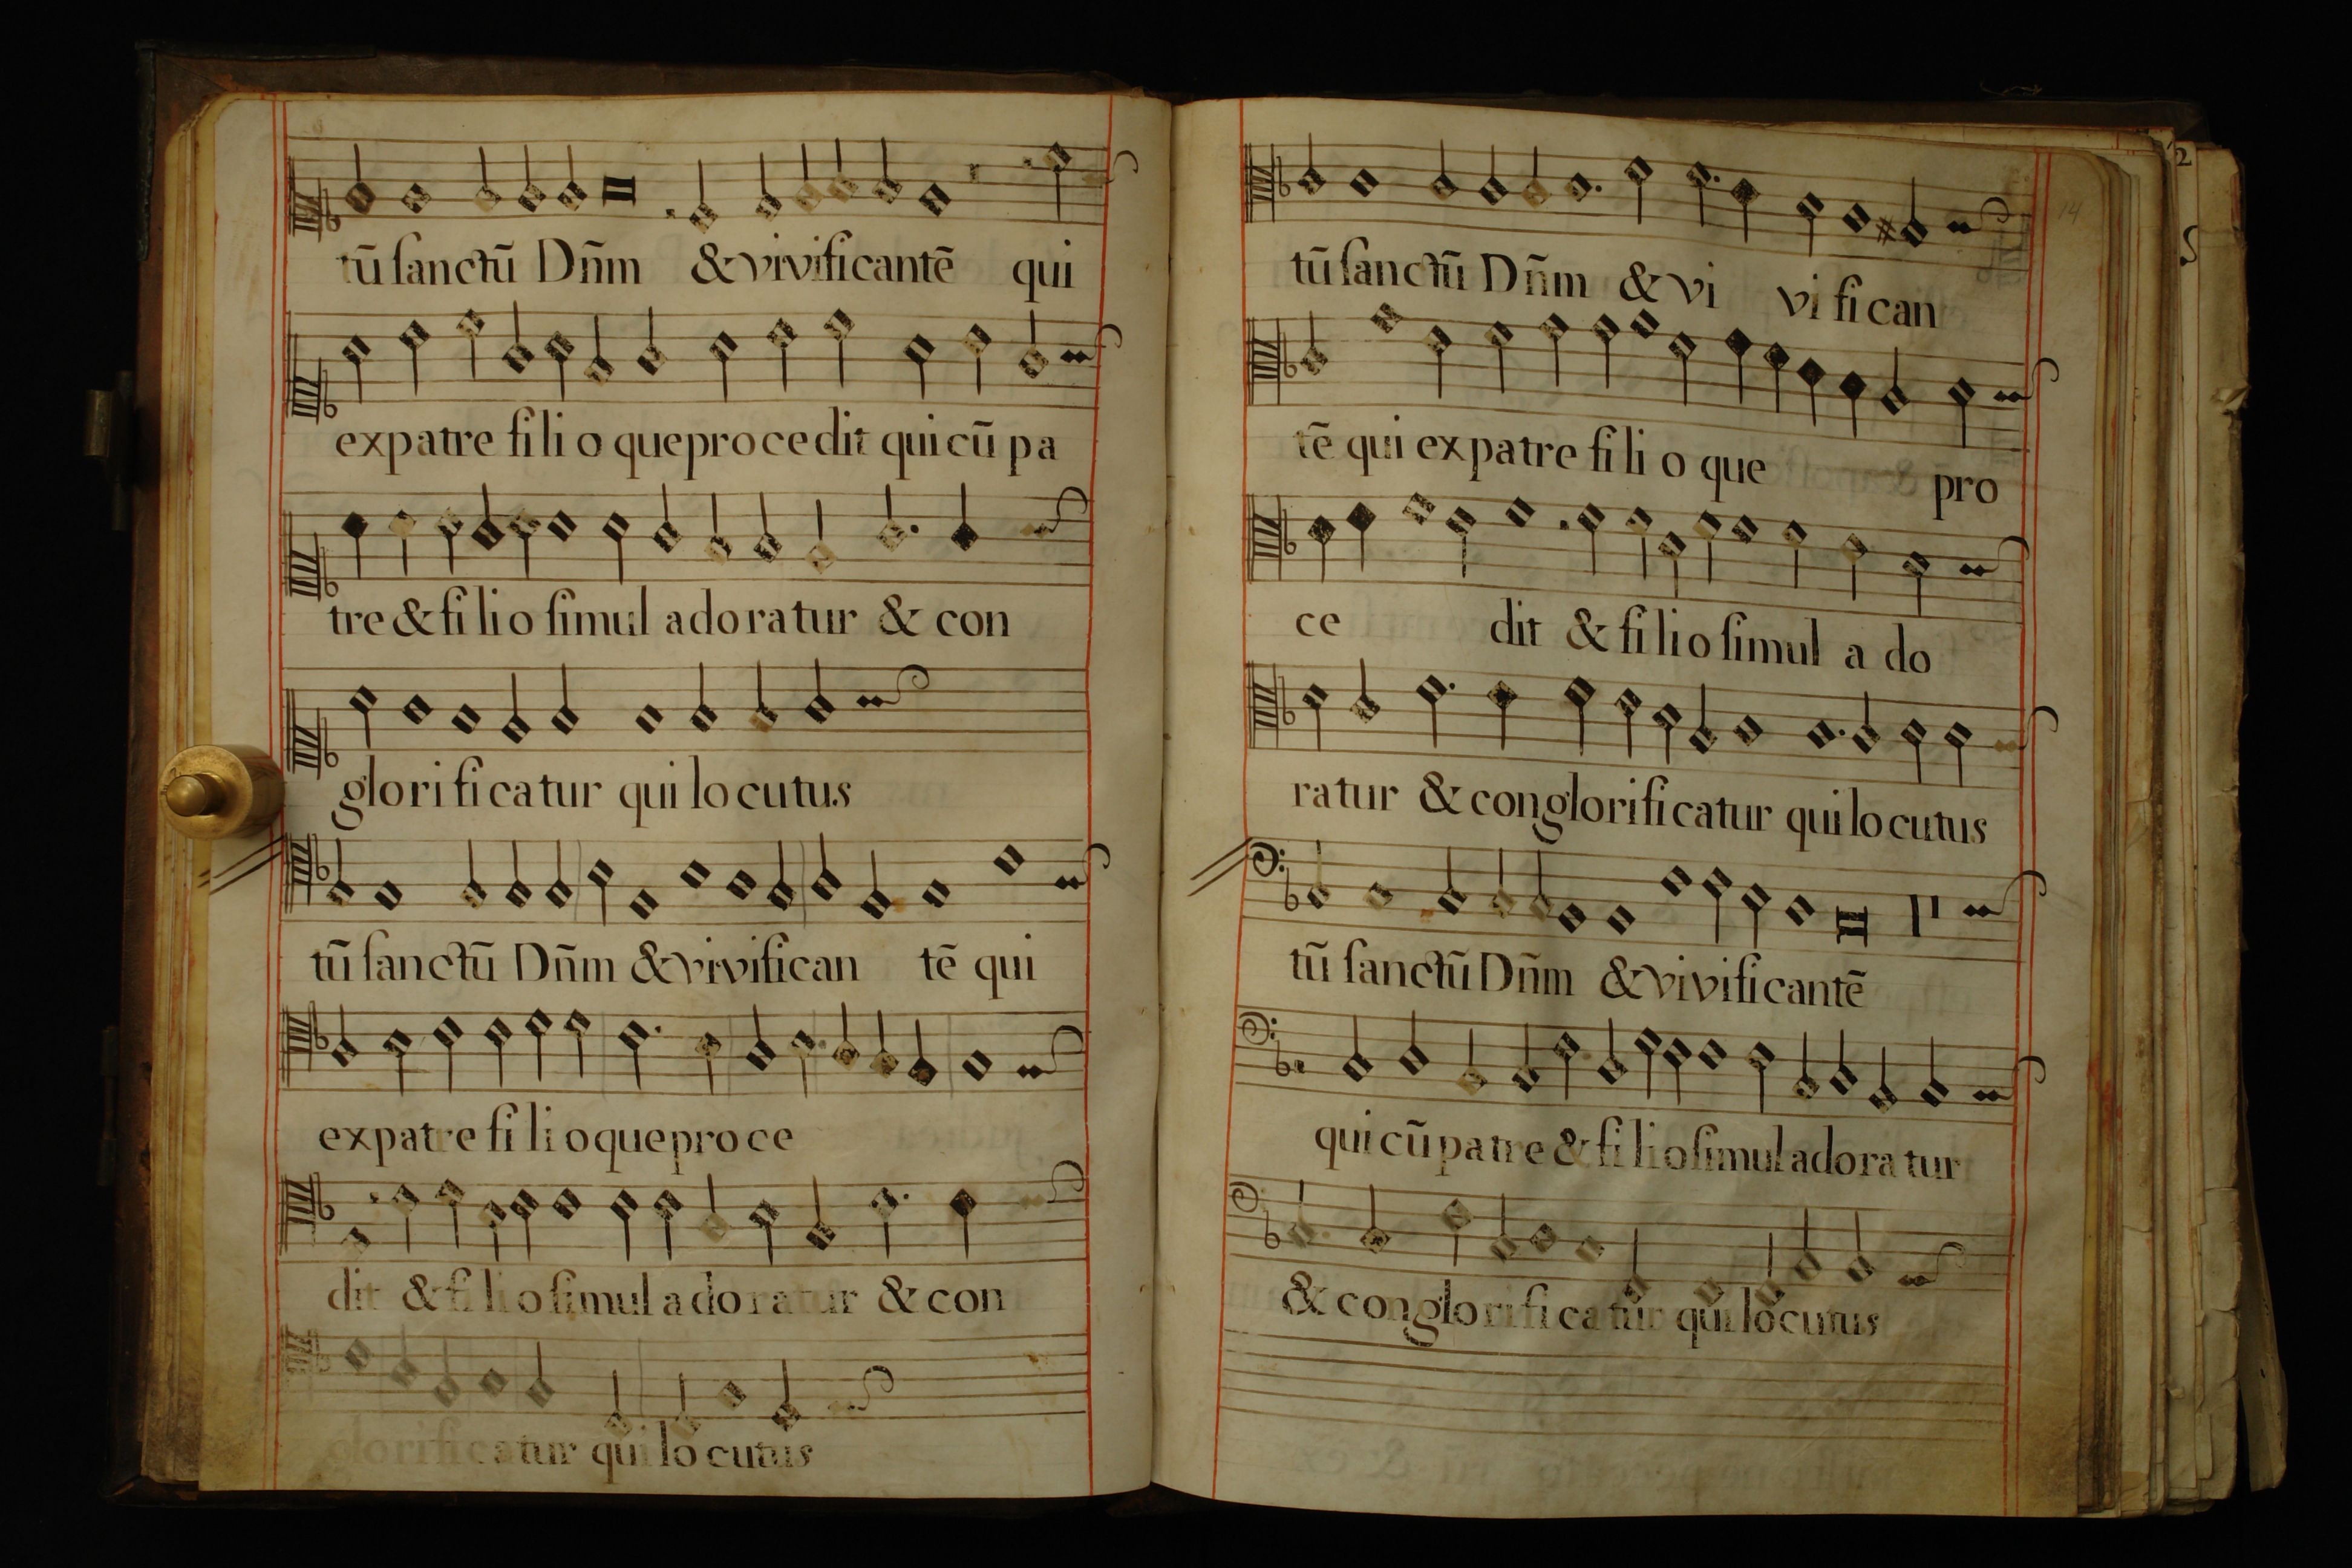 tū sanctū Dñm & vivificantē qui
ex patre filioque procedit qui cū pa
tre & filio simul adoratur & con
glorificatur qui locutus
tū sanctū Dñm & vivifican tē qui
ex patre filioque proce
dit & filio simul adoratur & con
glorificatur qui locutus
14
tū sanctū Dñm & vi vifican
tē qui ex patre filioque pro
ce dit & filio simul a do
ratur & conglorificatur qui locutus
tū sanctū Dñm & vivificantē
qui cū patre & filio simul adoratur
& conglorificatur qui locutus
2